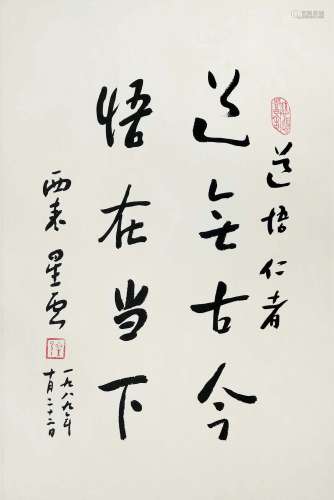 道悟仁者
道無古今
悟在当下
西来 星雲
一九八九年
十月二十二日